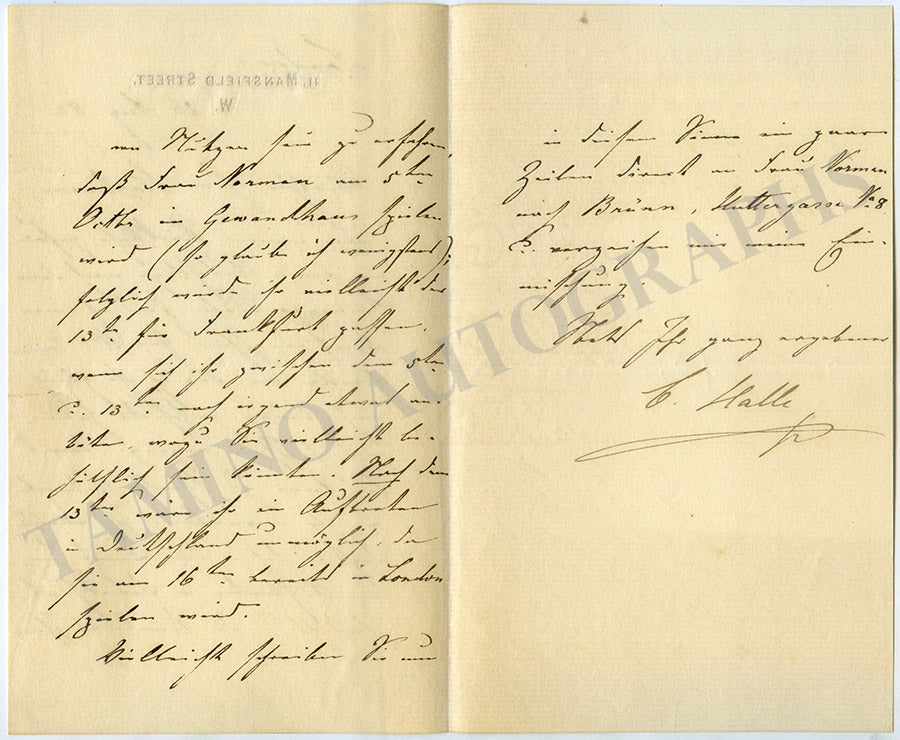 11. MANSFIELD STREET.
W.
von Nutzen sein zu erfahren,
daß Frau Norman am 5ten
Octbr im Gewandhaus spielen
wird (so glaube ich wenigstens);
folglich würde ihr vielleicht der
13te für Frankfurt passen,
wenn sich ihr zwischen dem 5ten
u. 13ten noch irgend etwas an-
böte, wozu Sie vielleicht be-
hülflich sein könnten. Nach dem
13ten wäre ihr ein Auftreten
in Deutschland unmöglich, da
sie am 16ten bereits in London
spielen wird.
Vielleicht schreiben Sie nun
in diesem Sinne ein paar
Zeilen direct an Frau Norman
nach Brünn, Huttergasse No 8
u. verzeihen mir meine Ein-
mischung.
Stets Ihr ganz ergebener
C. Halle
TAMINO AUTOGRAPHS